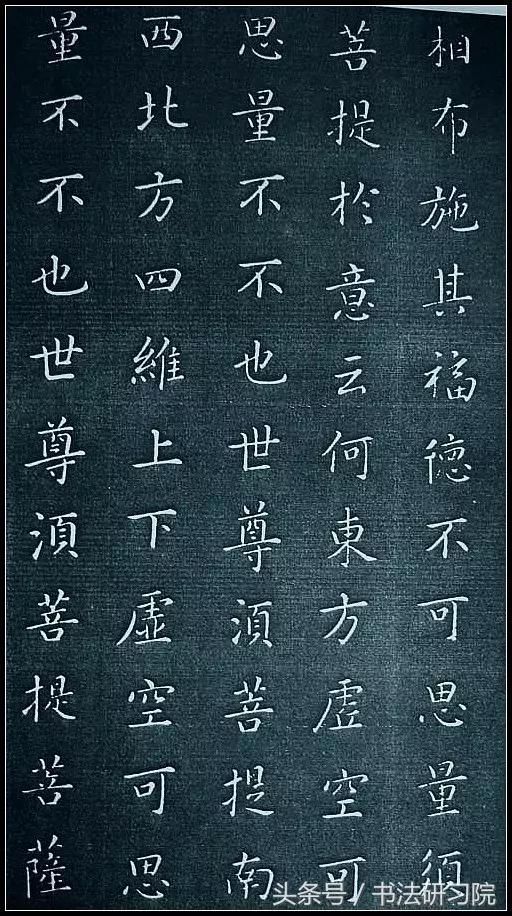 相布施其福德不可思量須
菩提於意云何東方虛空可
思量不不也世尊須菩提南
西北方四維上下虛空可思
量不不也世尊須菩提菩薩
头条号/书法研习院